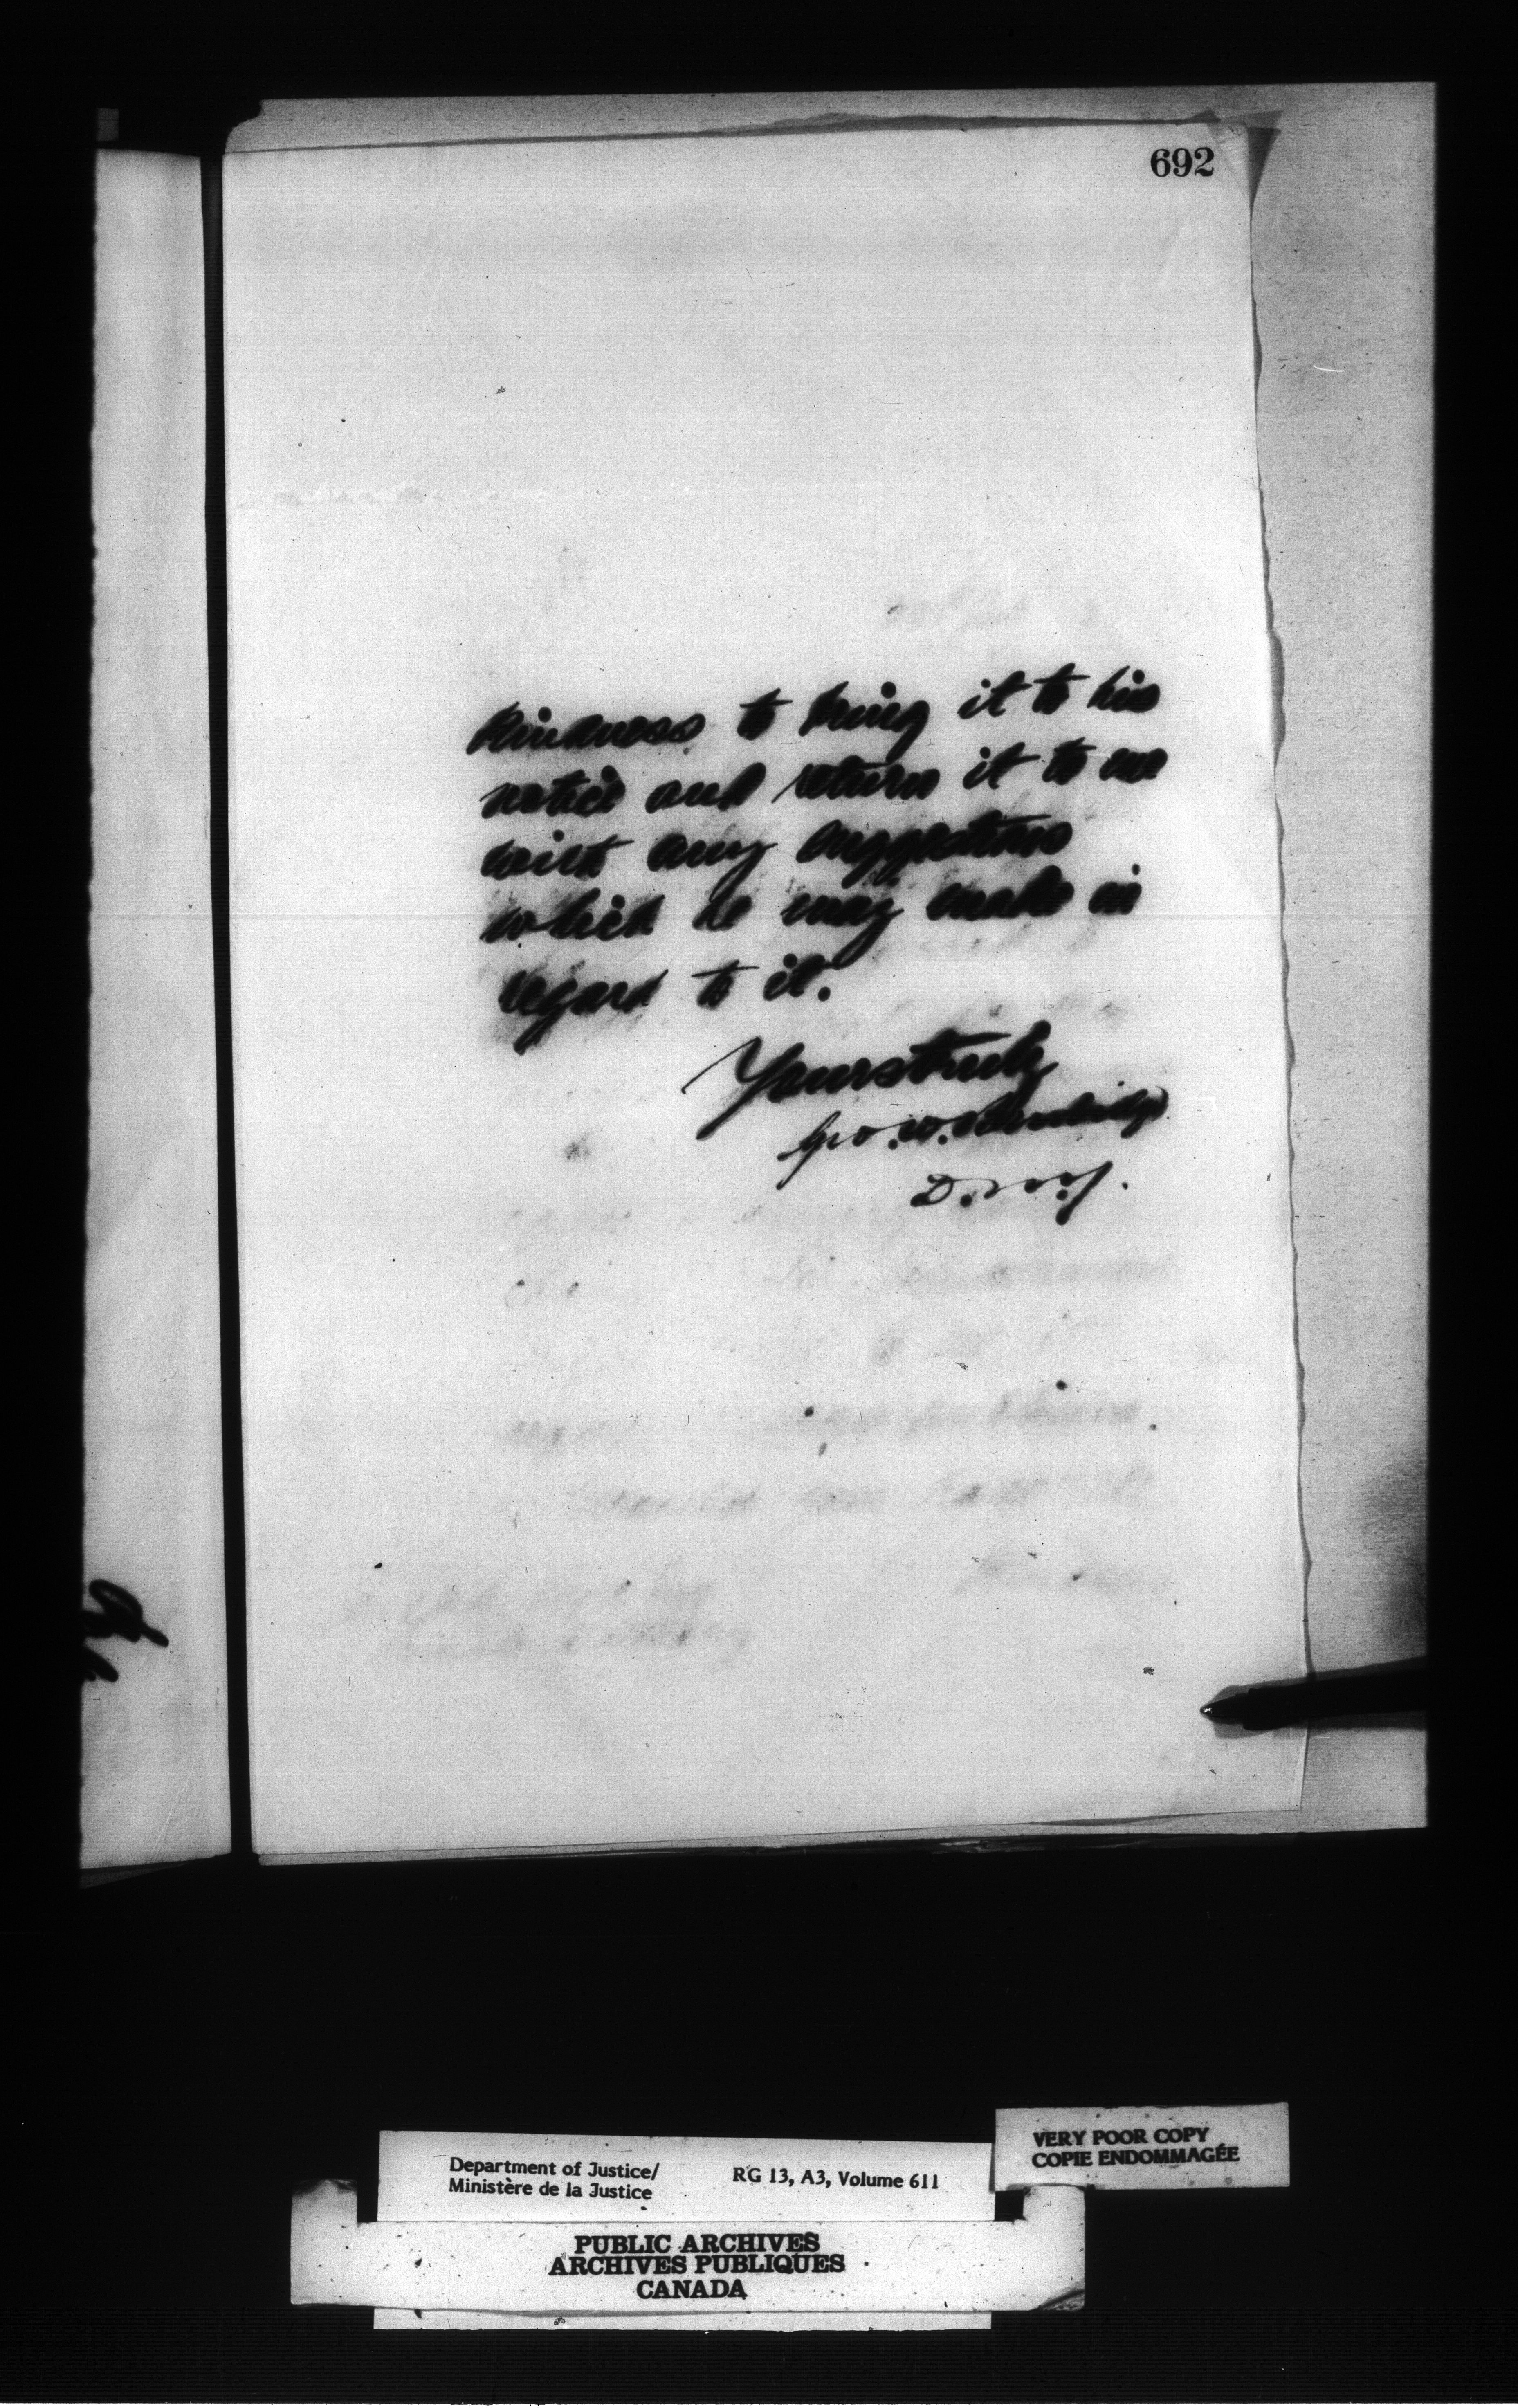 692
kindness to bring it to his
notice and return it to me
with any suggestions
which he may make in
regard to it.
Yours truly
Geo. W. Burbidge
D. M. J.
Department of Justice/
Ministère de la Justice
RG 13, A3, Volume 611
VERY POOR COPY
COPIE ENDOMMAGÉE
PUBLIC ARCHIVES
ARCHIVES PUBLIQUES
CANADA